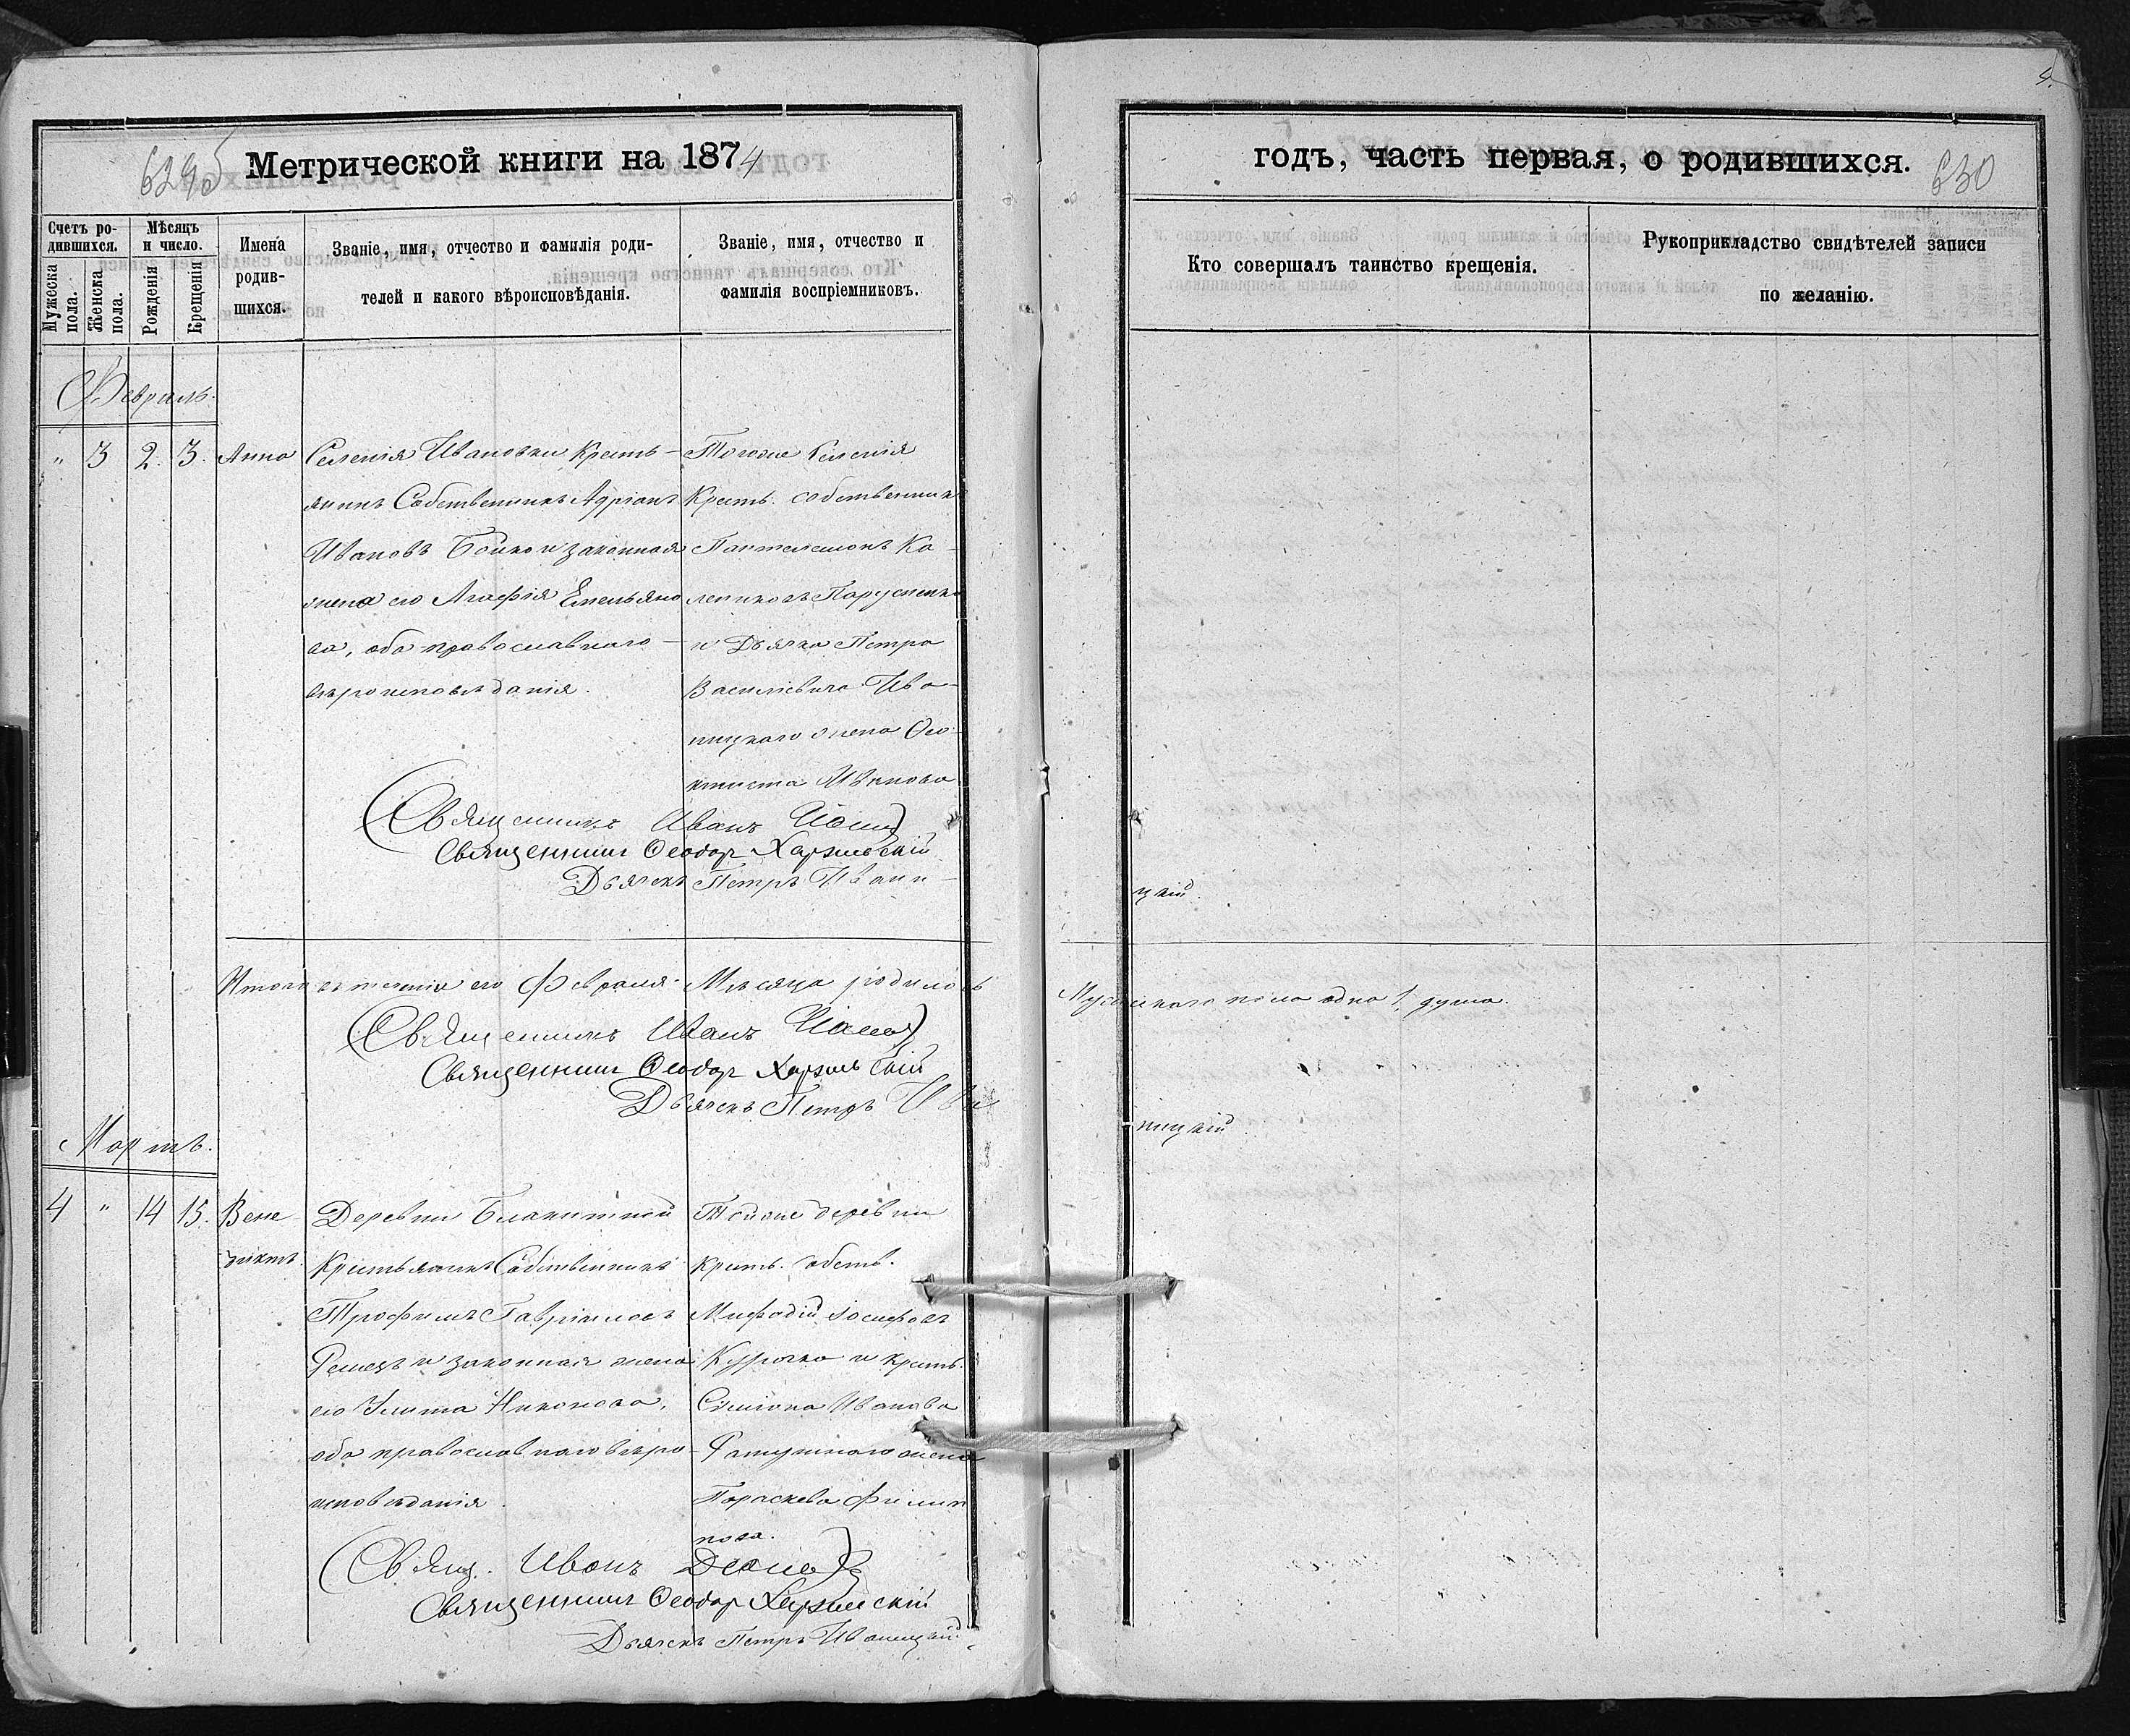 Метрической книги на 1874
годъ, часть первая, о родившихся.
630
Счетъ ро-
дившихся.
Мужеска
пола.
Женска
пола.
Мѣсяцъ
и число.
Рожденія
Крещенія
Имена
родив-
шихся.
Званіе, имя, отчество и фамилія роди-
телей и какого вѣроисповѣданія.
Званіе, имя, отчество и
фамилія воспріемниковъ.
Кто совершалъ таинство крещенія.
Рукоприкладство свидѣтелей записи
по желанію.
Февраль.
" 3 2. 3. Анна
Селенія Ивановки Кресть-
янинъ Собственникъ Адріанъ
Ивановъ Бойко и законная
жена его Агафія Емельяно
ва, оба православнаго
вѣроисповѣданія.
Тогоже селенія
Кресть. собственникъ
Пантелеимонъ Ка-
и Дьячка Петра
Василіевича Ива-
ницкаго жена Ѳео-
ктиста
Священникъ Иванъ
Священникъ Ѳеодор
Дьячекъ Петръ Івани-
цкій.
Итого въ теченіи его Февраля Мѣсяца родилось
Мужескаго пола одна 1. душа.
Священникъ Иванъ
Священникъ Ѳеодор
Дьячекъ Петръ Ива
ницкій.
Мартъ.
4 " 14 15. Вене
диктъ.
Деревни Блакитной
Крестьянинъ Собственникъ
Трофимъ Гавріиловъ
Ремезъ и законная жена
его Улита Никонова,
оба православнаго вѣро-
исповѣданія.
Тойже деревни
Кресть. собств.
Мифодій Іосифовъ
Курочка и кресть.
Симіона Иванова
Ратушнаго жена
Параскева Филип
пова.
Свящ. Иванъ
Священникъ Ѳеодор
Дьячекъ Петръ Иваницкій.